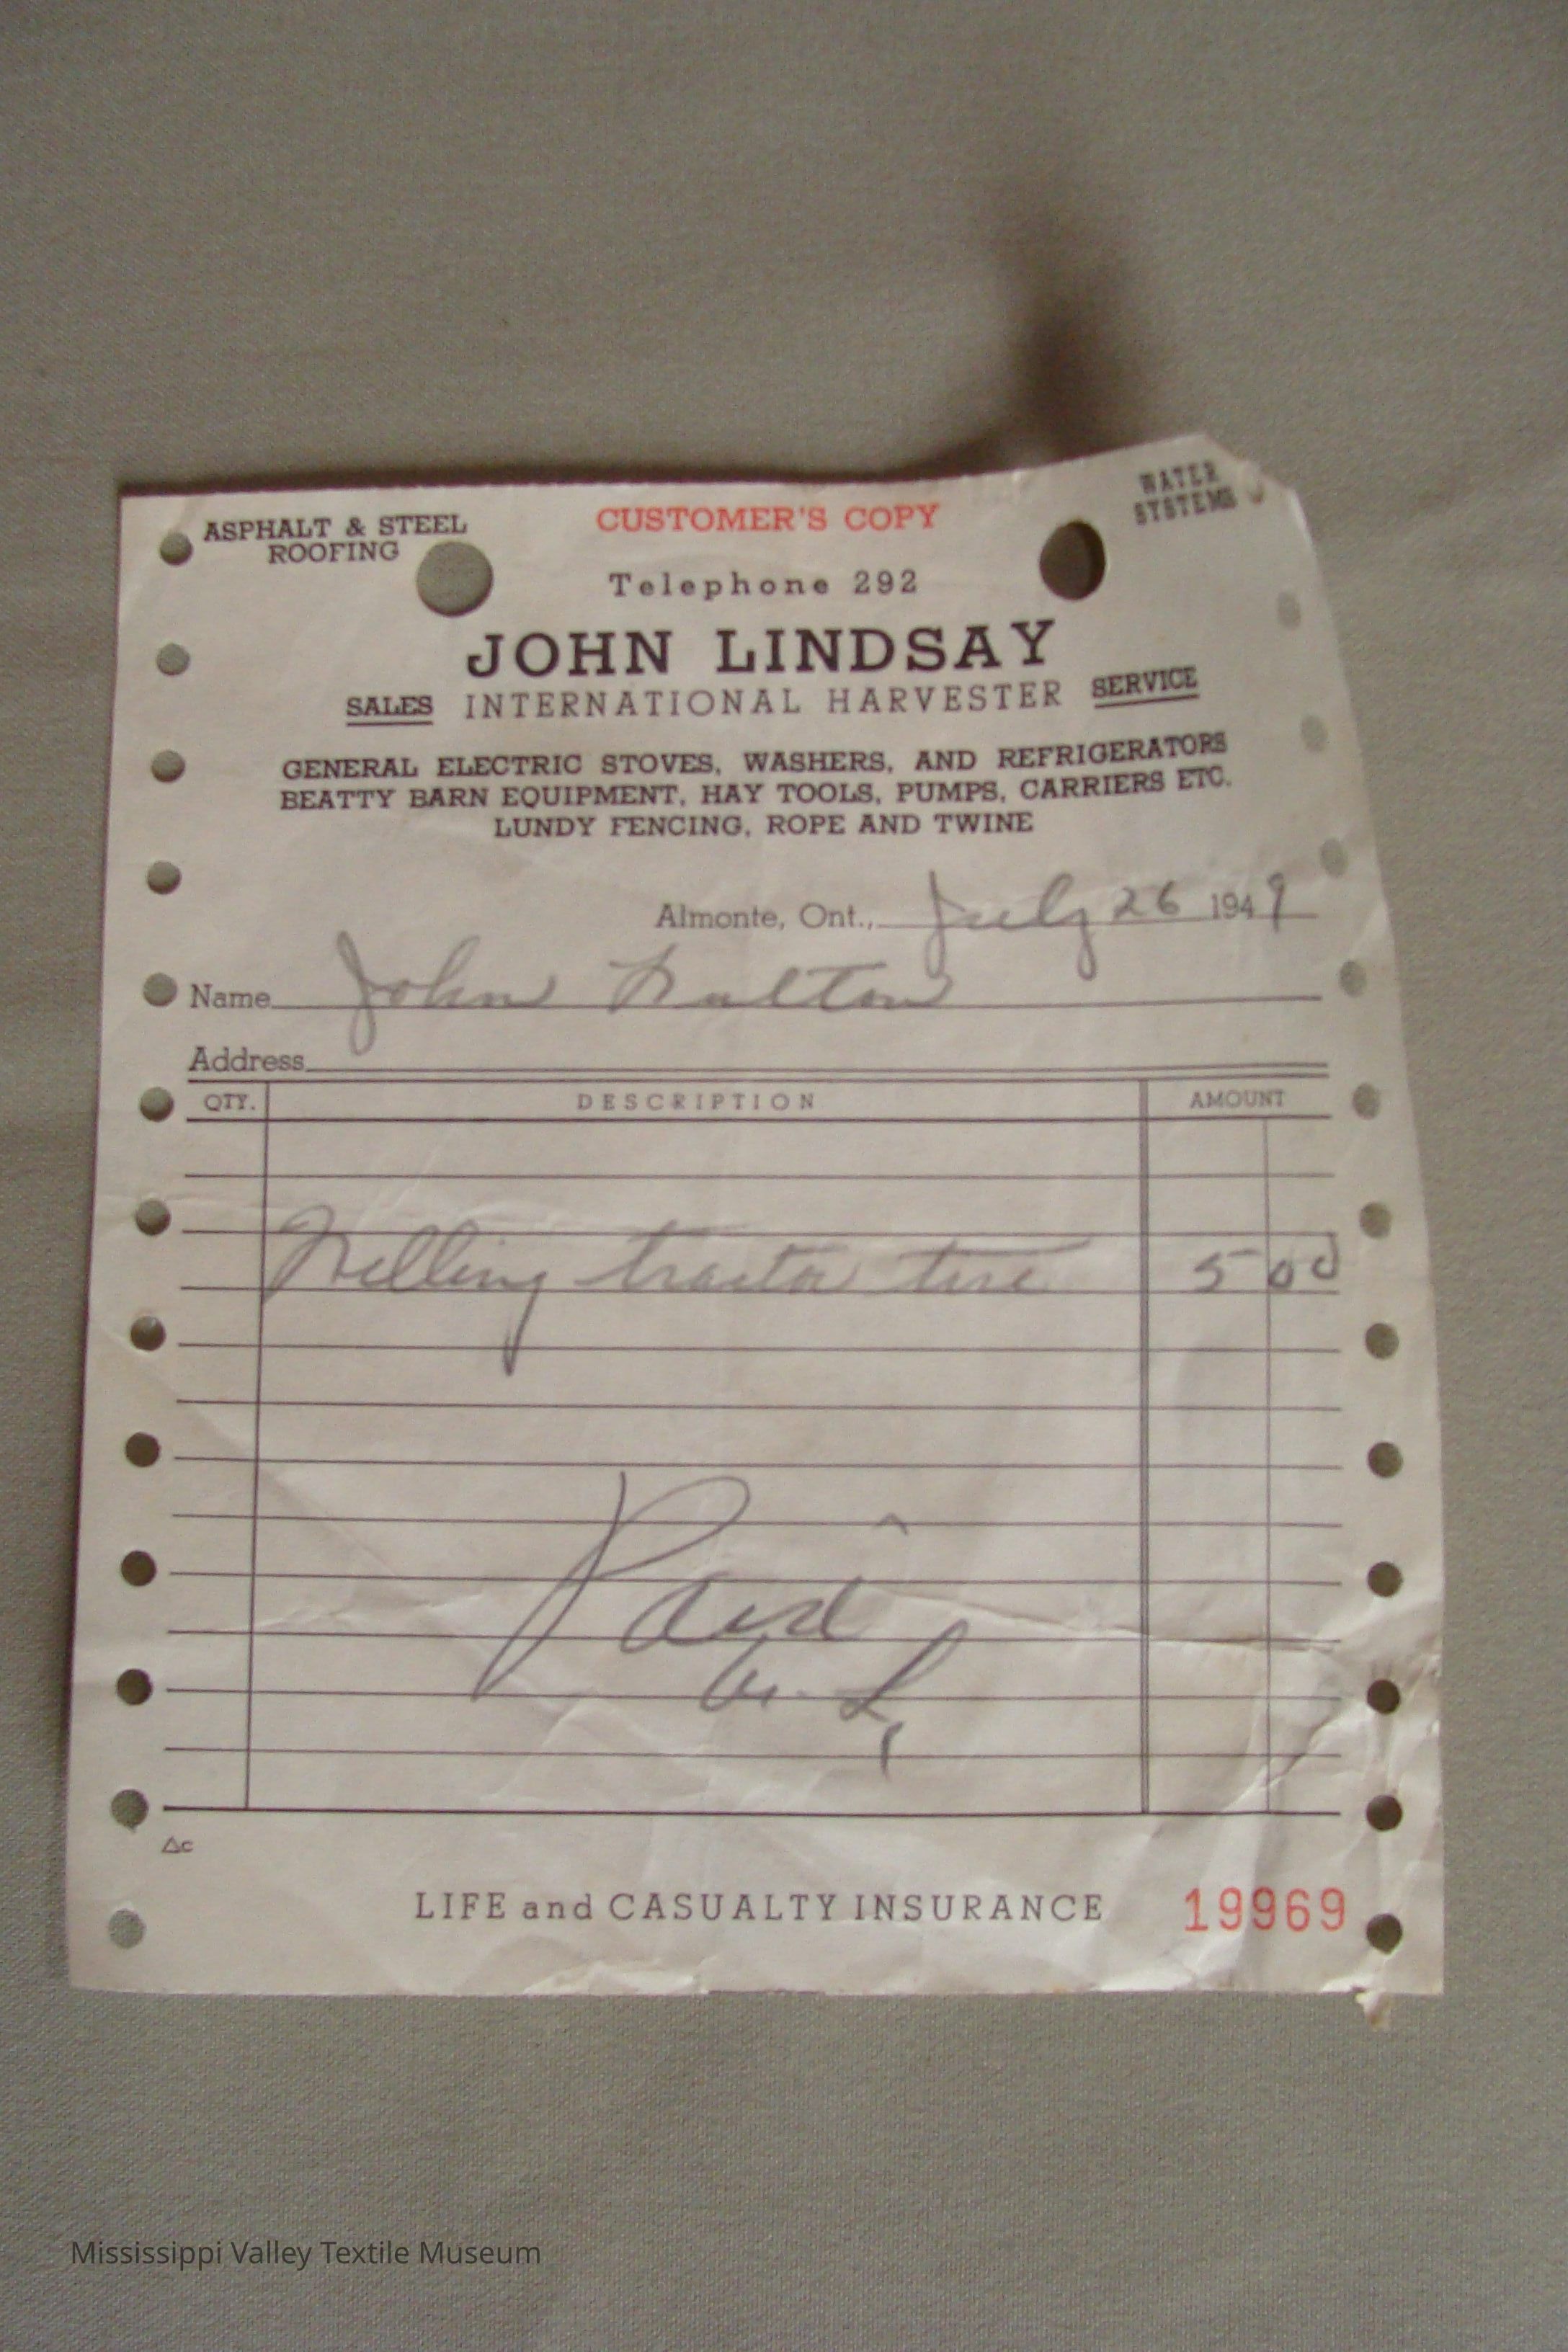 ASPHALT & STEEL
ROOFING
CUSTOMER'S COPY
WATER
SYSTEMS
Telephone 292
JOHN LINDSAY
SALES INTERNATIONAL HARVESTER SERVICE
GENERAL ELECTRIC STOVES, WASHERS, AND REFRIGERATORS
BEATTY BARN EQUIPMENT, HAY TOOLS, PUMPS, CARRIERS ETC.
LUNDY FENCING, ROPE AND TWINE
Almonte, Ont., July 26 1949
Name John
Address
QTY. DESCRIPTION AMOUNT
tractor tire 5 00
Paid
LIFE and CASUALTY INSURANCE 19969
Mississippi Valley Textile Museum